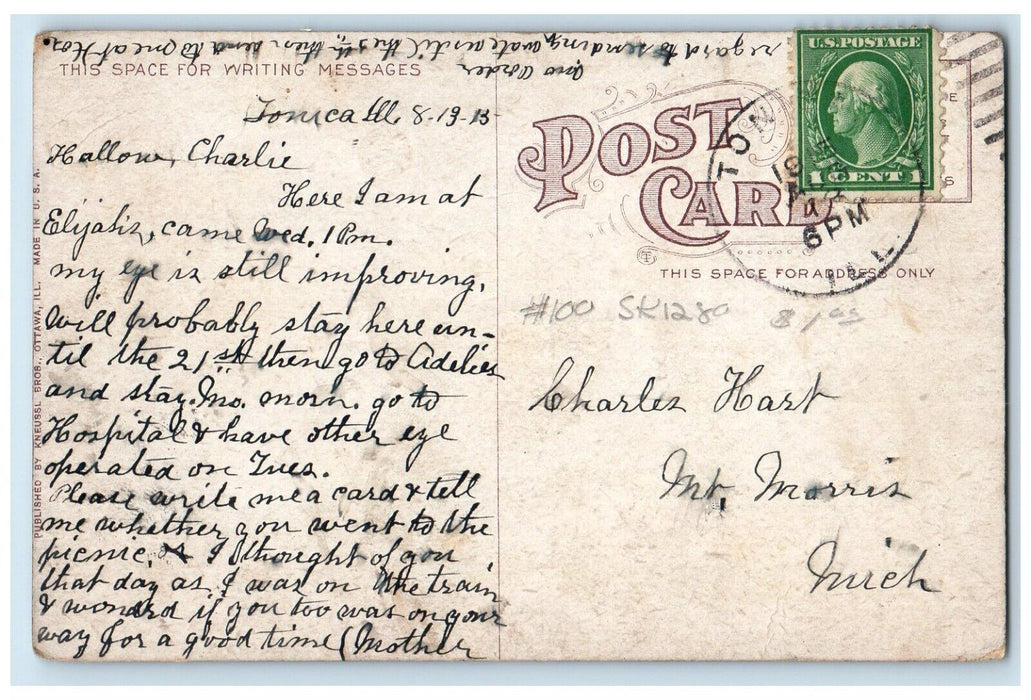 regard to sending, wate until the 5th, then send to me at Hos.
THIS SPACE FOR WRITING MESSAGES
Tonica Ill. 8-19-15
Hallow, Charlie
Here I am at
Elijah's, came Wed. 1 Pm.
my eye is still improving,
will probably stay here un-
til the 21st then go to Adelies
and stay. Mo. morn. go to
Hospital & have other eye
operated on Tues.
Please write me a card & tell
me whether you went to the
picnic. I thought of you
that day as I was on the train
& wondrd if you too was on your
way for a good time (Mother
PUBLISHED BY KNEUSSL BROS., OTTAWA, ILL. MADE IN U. S. A.
POST
CARD
THIS SPACE FOR ADDRESS ONLY
U.S. POSTAGE
1 CENT 1
TON
19
6 PM
ILL.
#100 SK1280
Charles Hart
Mt. Morris
Mich